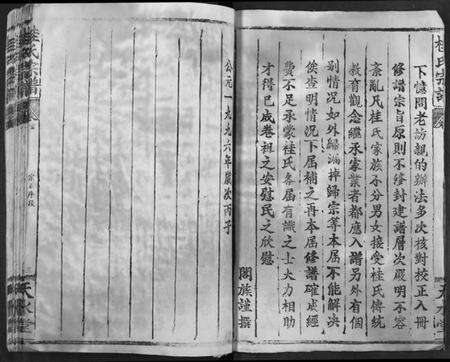 桂氏宗譜
下憶問老訪親的辦法多次核對校正入冊
修譜宗旨原則不修封建譜層次嚴明不容
紊亂凡桂氏家族不分男女接受桂氏傳統
教育觀念繼承家業者都應入譜另外有個
別情況如外歸漏掉歸宗等本屆不能解決
俟查明情況下屆補之再本屆修譜確成經
費不足承蒙桂氏各屆有識之士大力相助
才得已成卷祖之安慰民之欣慰
闔族謹撰
公元一九九六年歲次丙子